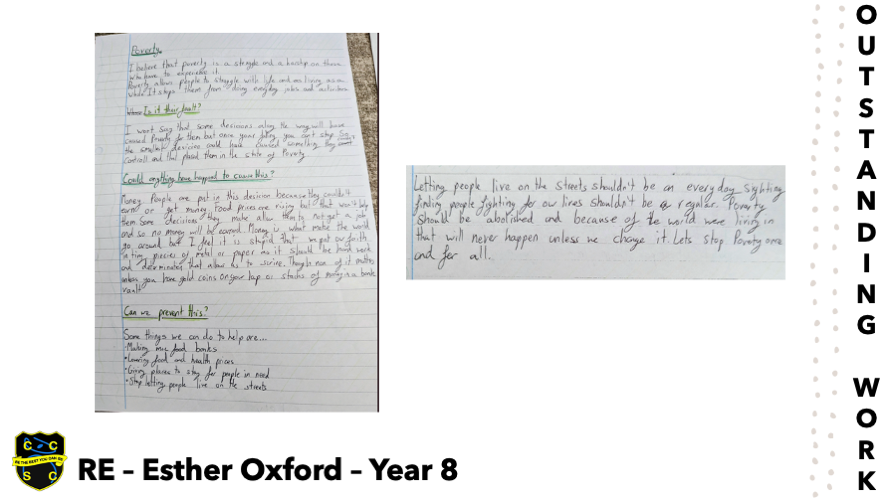 Poverty.
I believe that poverty is a struggle and a hardship on those
who have to experience it.
Poverty allows people to struggle with life and living as a
whole. It stops them from doing everyday jobs and activities
Is it their fault?
I wont say that some decisions along the way will have
caused Poverty for them but once your falling you can't stop
the smallest decisions could have caused something they
controll and that placed them in the state of Poverty
Could anything have happend to cause this?
Money. People are put in this decision because they couldn't
earn or get money. Food prices are rising but that won't help
them. Some decisions they make allow them to not get a job
and so no money will be earned. Money is what make the world
go around but I feel it is stupid that we put our faith
in tiny pieces of metal or paper as it should be hard work
and determination that allow us to Though non of it matters
unless you have gold coins on your lap or stacks of money in a bank
vault
Can we prevent this?
Some things we can do to help are...
• Making more food banks
• Lowering food and health prices
• Giving places to stay for people in need
• Stop letting people live on the streets
Letting people live on the streets shouldn't be an everyday sighting
finding people fighting for our lives shouldn't be a regular. Poverty
should be abolished and because of the world were living in
that will never happen unless we change it. Lets stop Poverty once
and for all.
C C
BE THE BEST YOU CAN BE
S C
RE – Esther Oxford – Year 8
OUTSTANDING WORK